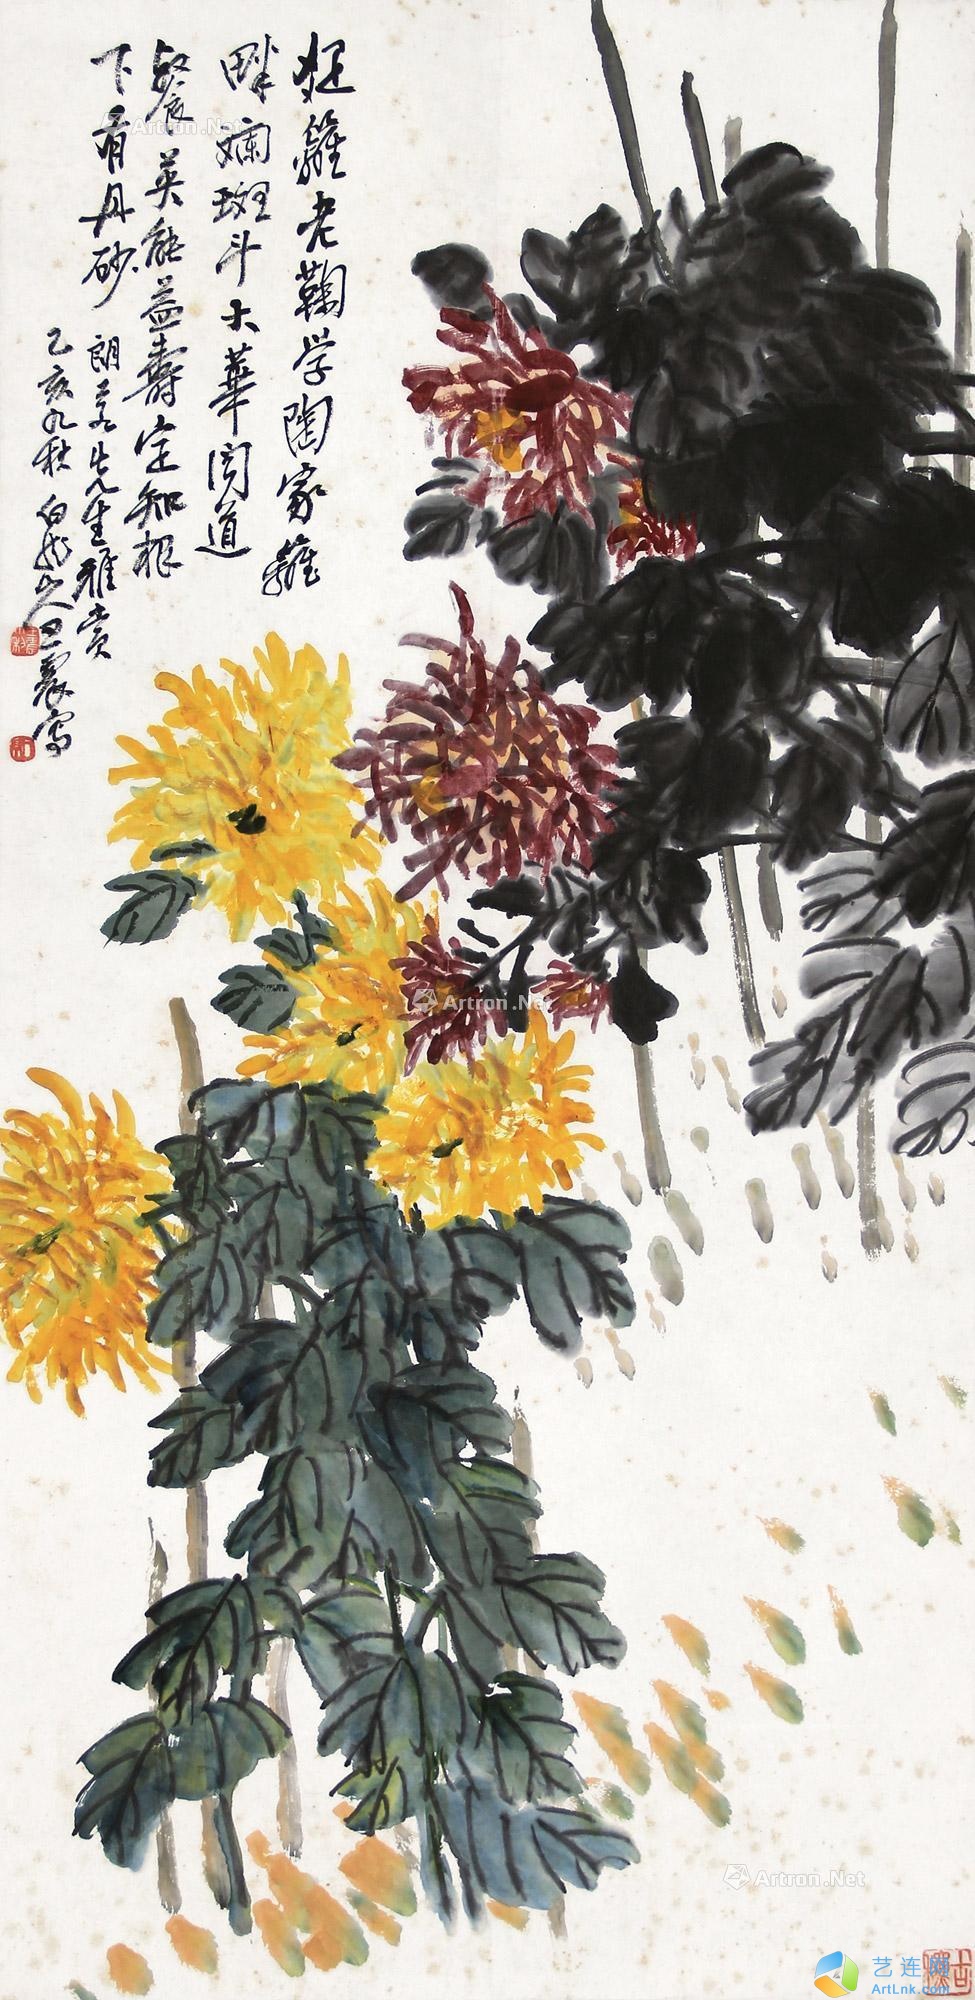 狂籬老鞠学陶家籬
畔斓斑斗大華闻道
餐英能益壽定知根
下有丹砂
朗羕先生雅賞
乙亥九秋白龙山人王震写
Artron.Net
Artron.Net
Artron.Net
艺连网
ArtLnk.com